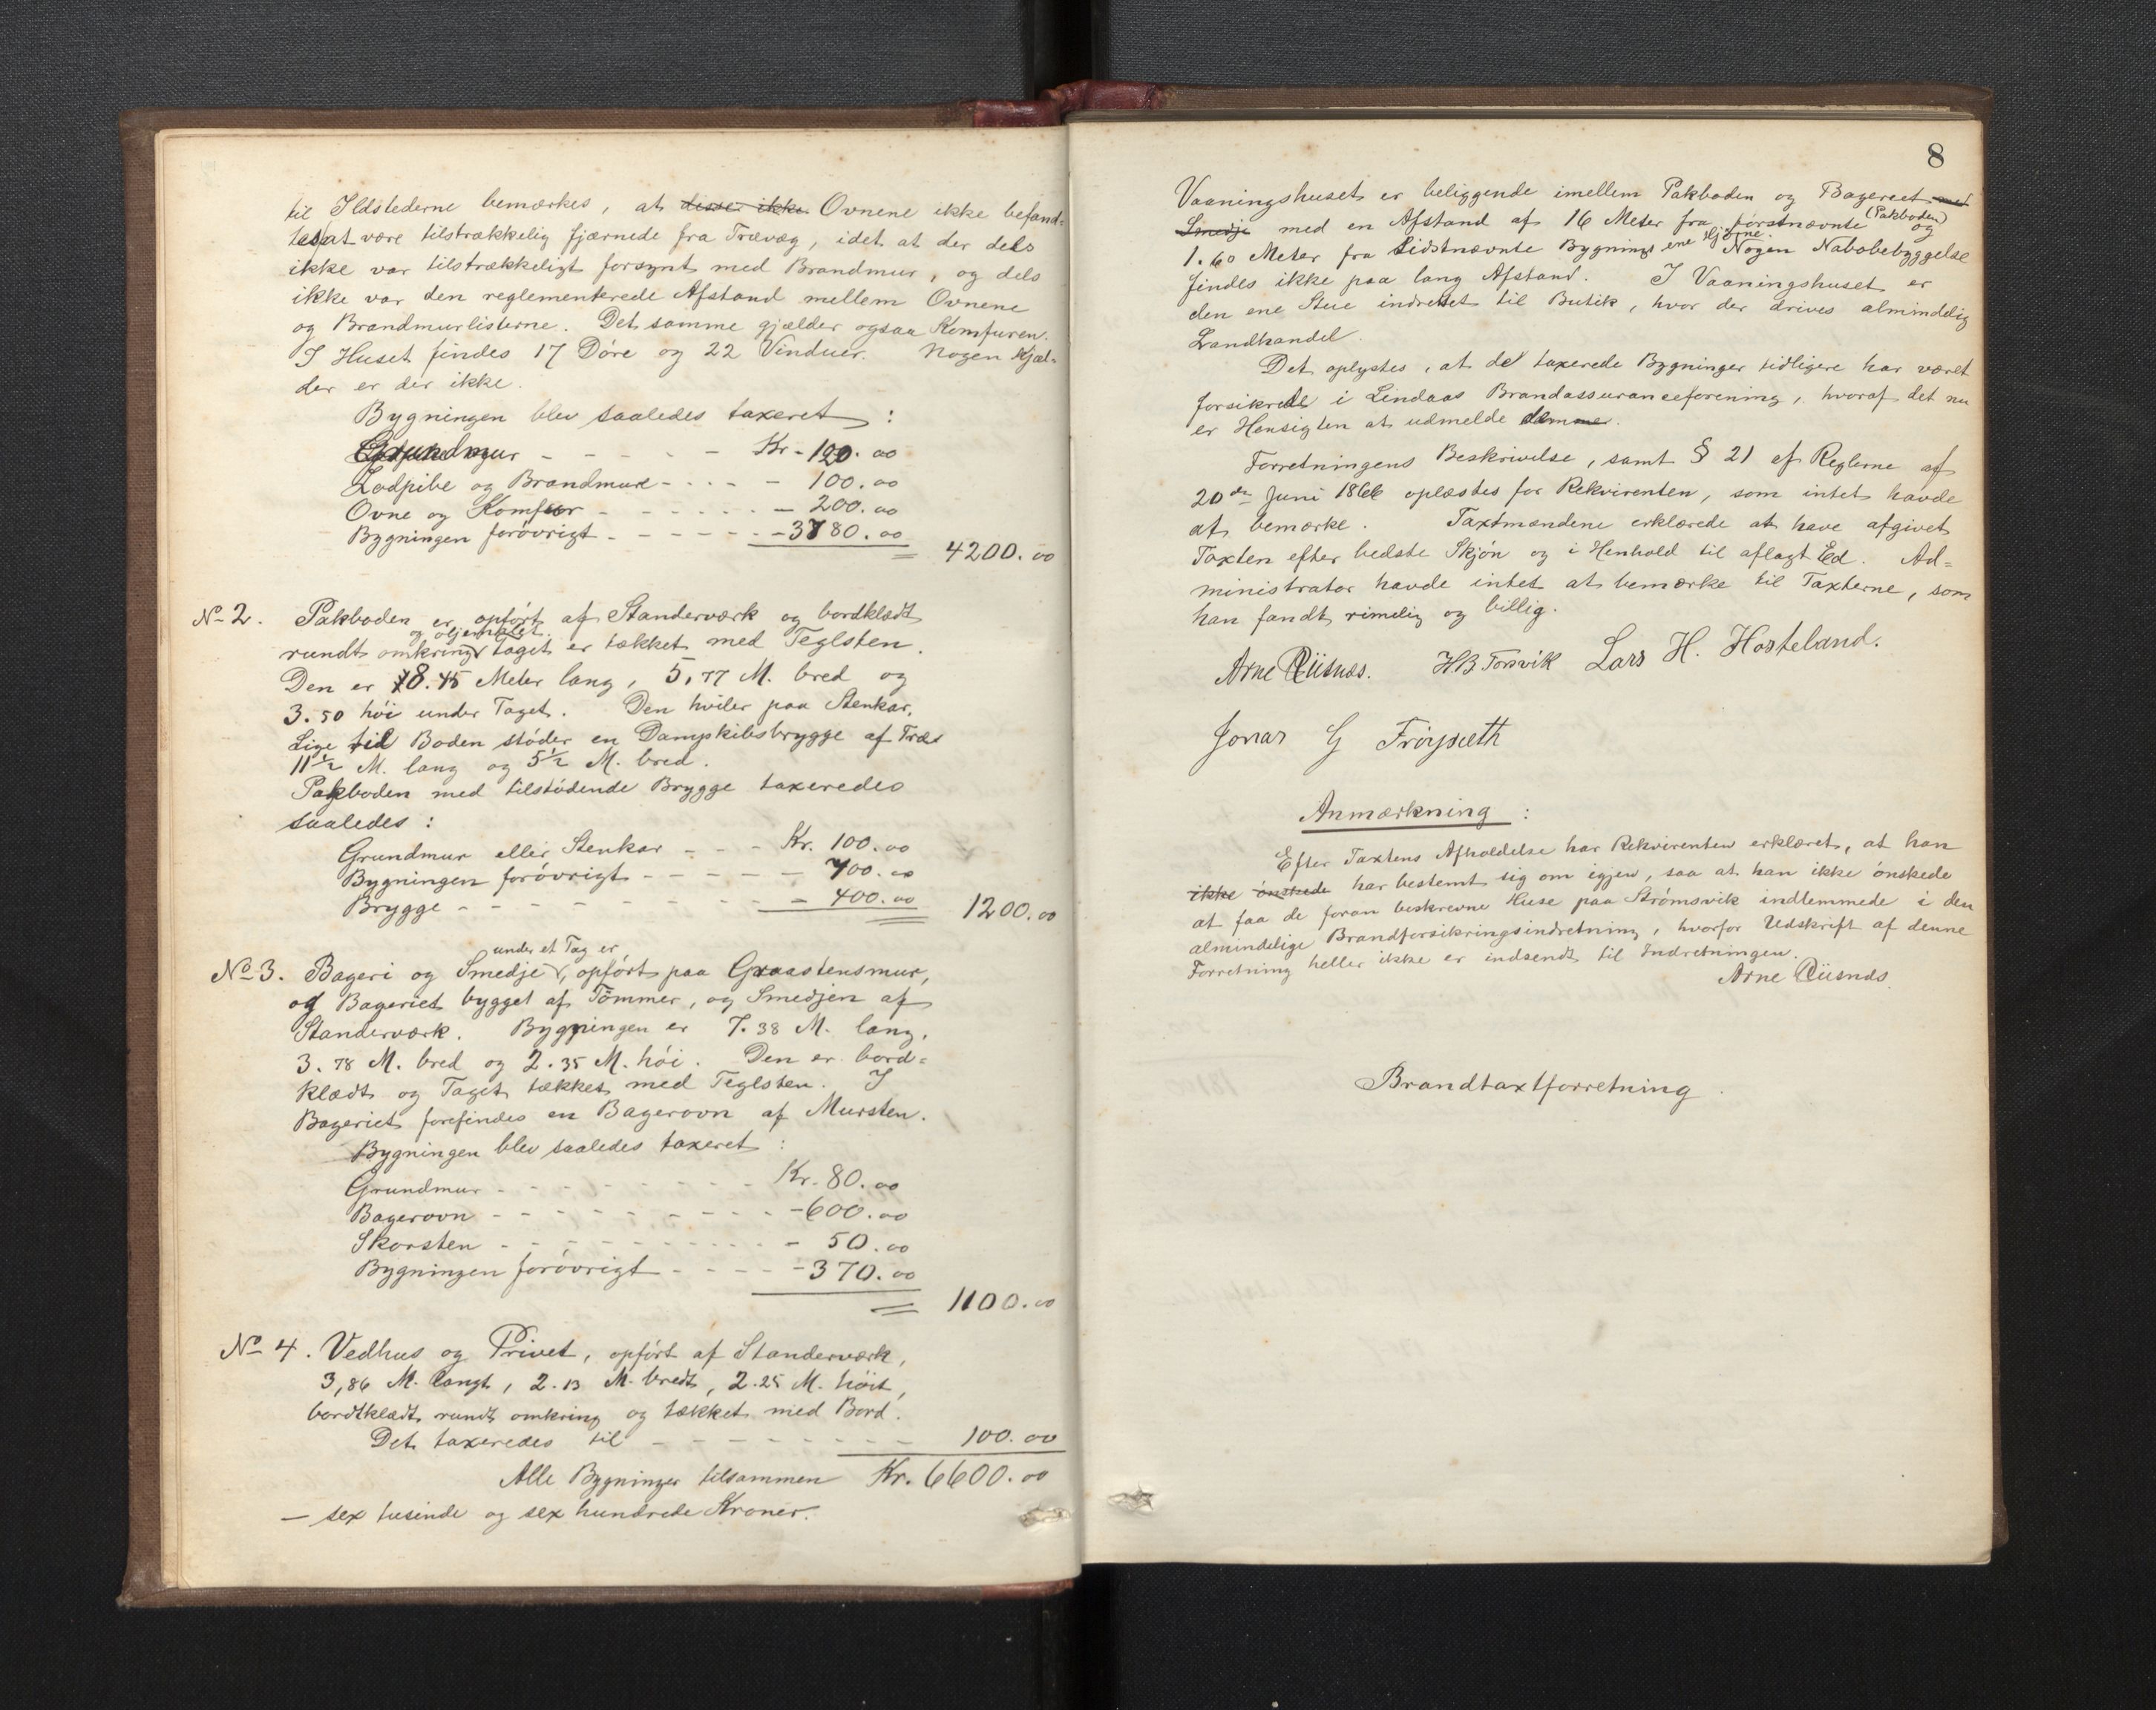 til Ildstederne bemærkes, at disse ikke Ovnene ikke befand-
tes at være tilstrækkelig fjærnede fra Trævæg, idet at der dels
ikke var tilstrækkeligt forsynt med Brandmur, og dels
ikke var den reglementerede Afstand mellem Ovnene
og Brandmurlisterne. Det samme gjælder ogsaa Komfuren.
I Huset findes 17 Döre og 22 Vinduer. Nogen Kjæl-
der er der ikke.
Bygningen blev saaledes taxeret :
Grundmur - - - - - Kr. - 120.00
Lodpibe og Brandmure - - - - - 100.00
Ovne og Komfur - - - - - - 200.00
Bygningen foróvrigt - - - - - - 3780.00
= 4200.00
No 2. Pakboden er opfórt af Standerværk og bordklædt
og oljemalet.
rundt omkring taget er tækket med Teglsten.
Den er 18.45 Meter lang, 5,77 M. bred og
3.50 hói under Taget. Den hviler paa Stenkar.
Lige til Boden stóder en Dampskibsbrygge af Træ
11½ M. lang og 5½ M. bred.
Pakboden med tilstódende Brygge taxeredes
saaledes :
Grundmur eller Stenkar - - - Kr. 100.00
Bygningen foróvrigt - - - - - - 700.00
Brygge - - - - - - - - - 400.00
1200.00
under et Tag er
No 3. Bageri og Smedje, opfórt paa Graastensmur,
og Bageriet bygget af Tömmer, og Smedjen af
Standerværk. Bygningen er 7.38 M. lang,
3.78 M. bred og 2.35 M. hói. Den er bord-
klædt og Taget tækket med Teglsten. I
Bageriet forefindes en Bagerovn af Mursten.
Bygningen blev saaledes taxeret :
Grundmur - - - - - - - - Kr. 80.00
Bagerovn - - - - - - - - - 600.00
Skorsten - - - - - - - - - 50.00
Bygningen foróvrigt - - - - - 370.00
= 1100.00
No 4. Vedhus og Privet, opfórt af Standerværk,
3,86 M. langt, 2.13 M. bredt, 2.25 M. hóit,
bordtklædt rundt omkring og tækket med Bord.
Det taxeredes til - - - - - - - - 100.00
Alle Bygninger tilsammen Kr. 6600.00
— sex tusinde og sex hundrede Kroner.
8
Vaaningshuset er beliggende imellem Pakboden og Bageriet med
Smedje med en Afstand af 16 Meter fra fórstnævnte (Pakboden) og
1.60 Meter fra Sidstnævnte Bygnings ene Hjórne. Nogen Nabobebyggelse
findes ikke paa lang Afstand. I Vaaningshuset er
den ene Stue indrettet til Butik, hvor der drives almindelig
Landhandel.
Det oplystes, at de taxerede Bygninger tidligere har været
forsikrede i Lindaas Brandassuranceforening, hvoraf det nu
er Hensigten at udmelde demme.
Forretningens Beskrivelse, samt § 21 af Reglerne af
20de Juni 1866 oplæstes for Rekvirenten, som intet havde
at bemærke. Taxtmændene erklærede at have afgivet
Taxten efter bedste Skjón og i Henhold til aflagt Ed. Ad-
ministrator havde intet at bemærke til Taxterne, som
han fandt rimelig og billig.
Arne Riisnæs. H B Torsvik Lars H. Hosteland.
Jonas G Fröysæth
Anmærkning :
Efter Taxtens Afholdelse har Rekvirenten erklæret, at han
ikke ónskede har bestemt sig om igjen, saa at han ikke ónskede
at faa de foran beskrevne Huse paa Strómsvik indlemmede i den
almindelige Brandforsikringsindretning, hvorfor Udskrift af denne
Forretning heller ikke er indsendt til Indretningen.
Arne Riisnæs.
Brandtaxtforretning.